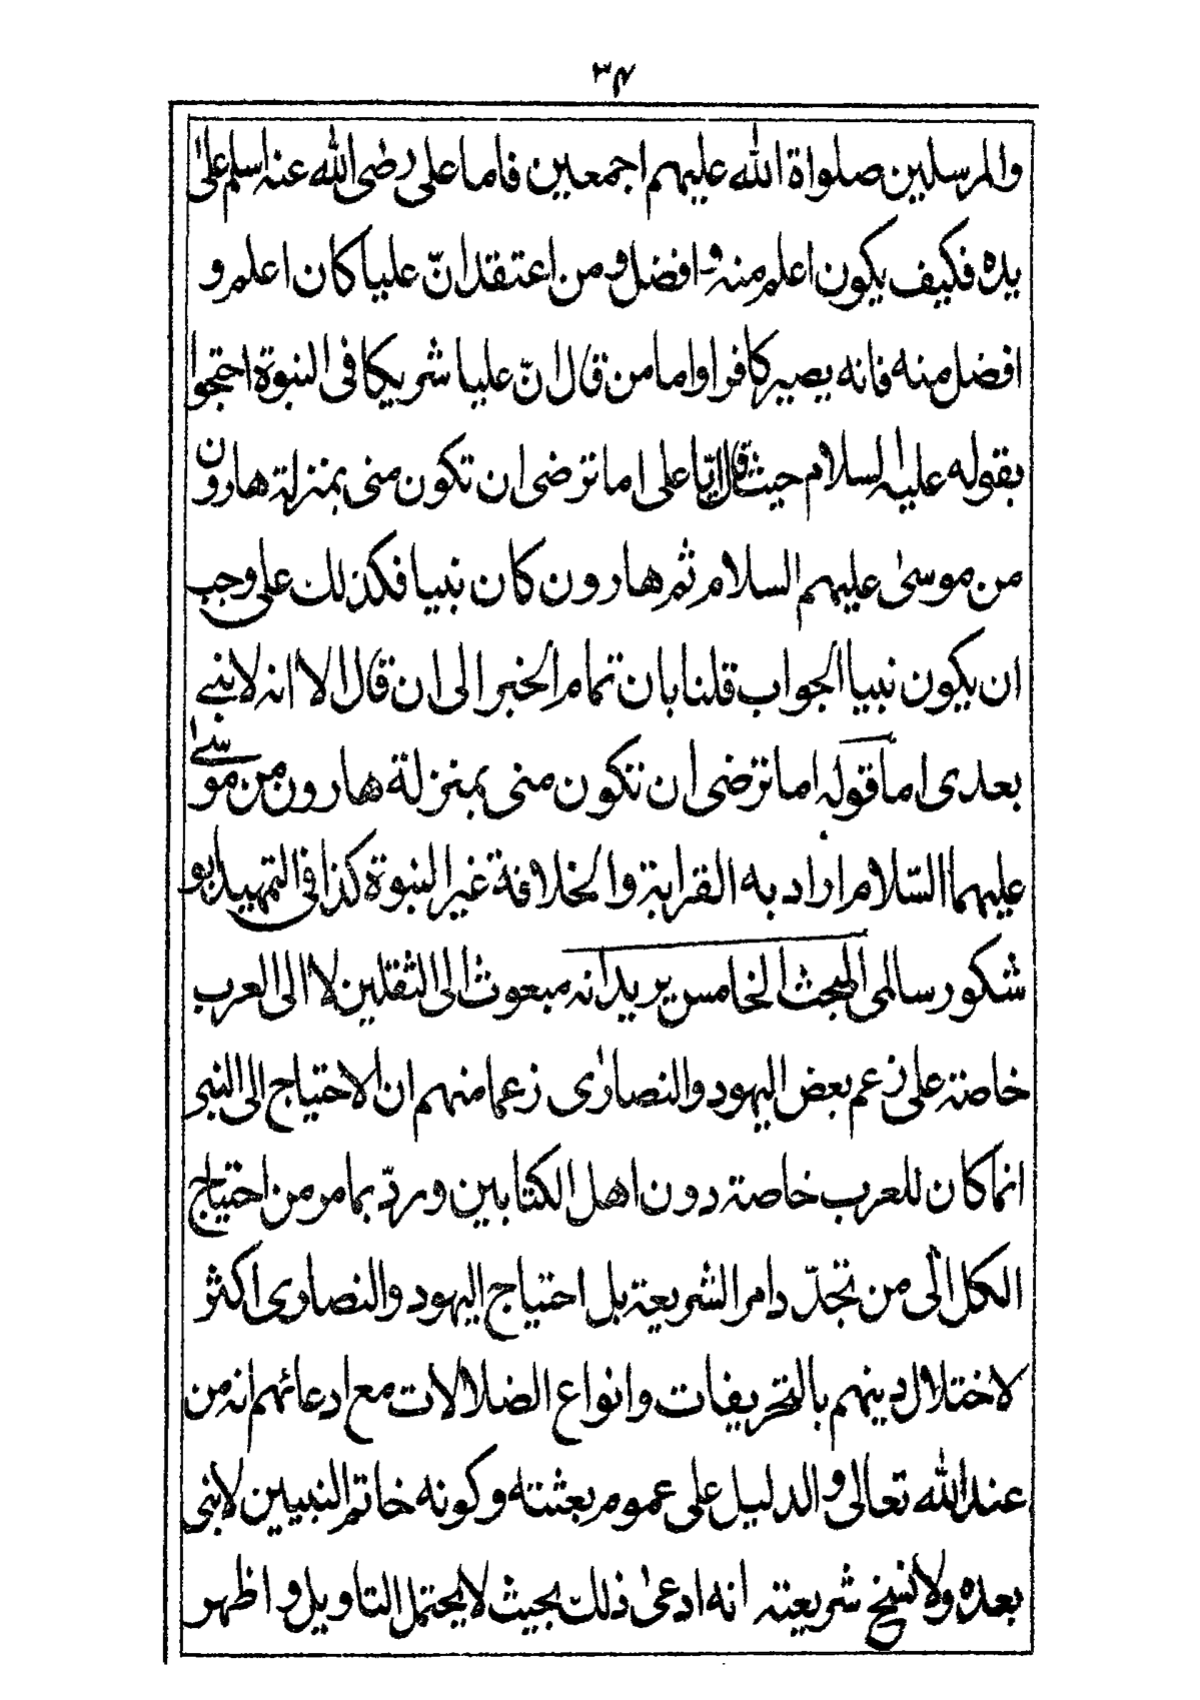 ۳۴
والمرسلين صلواة الله عليهم اجمعين فاما على رضى الله عنه اسلم على
يده فكيف يكون اعلم منه وافضل ومن اعتقد انّ عليا كان اعلم و
افضل منه فانه يصير كافرا واما من قال انّ عليا شريكا فى النبوة احتجوا
بقوله عليه السلام حيث قال يا على اما ترضى ان تكون منى بمنزلة هارون
من موسىٰ عليهم السلام ثم هارون كان نبيا فكذلك على وجب
ان يكون نبيا الجواب قلنا بان تمام الخبر الى ان قال الا انه لا نبے
بعدى اما قوله اما ترضى ان تكون منى بمنزلة هارون من موسىٰ
عليهما السّلام اراد به القرابة والخلافة غير النبوة كذا فى التمهيد ابو
شكور سالمى المبحث الخامس يريد انه مبعوث الى الثقلين لا الى العرب
خاصة على زعم بعض اليهود والنصارٰى زعما منهم ان الاحتياج الى النبى
انما كان للعرب خاصة دون اهل الكتابين وردّ بما مر من احتياج
الكل الٰى من تجدّد امر الشريعة بل احتياج اليهود والنصارى اكثر
لاختلال دينهم بالتحريفات وانواع الضلالات مع ادعائهم انه من
عند الله تعالى والدليل على عموم بعثته وكونه خاتم النبيين لا نبى
بعده ولا نسخ شريعته انه ادعىٰ ذلك بحيث لا يحتمل التاويل و اظهر